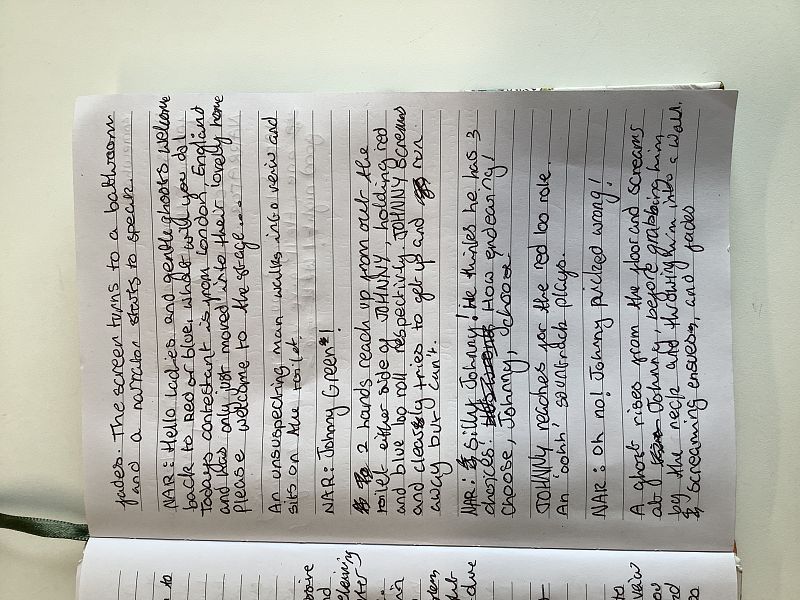 fades. The screen turns to a bathroom
and a narrator starts to speak.
NAR: Hello ladies and gentleghosts welcome
back to Red or blue, whatt will you do!
Todays contestant is from London, England
and has only just moved into their lovely home
please welcome to the stage...
An unsuspecting man walks into veiw and
sits on the toilet.
NAR: Johnny Green!
2 hands reach up from out the
toilet either side of JOHNNY, holding red
and blue loo roll respectively. JOHNNY screams
and clearly tries to get up and run
away but can't.
NAR: Silly Johnny! He thinks he has 3
choices! How endearing!
Choose, Johnny, choose!
JOHNNY reaches for the red loo role.
An 'oohh' soundtrack plays.
NAR: Oh no! Johnny picked wrong!
A ghost rises from the floor and screams
at Johnny, before grabbing him
by the neck and throwing him into a wall.
screaming ensues, and fades